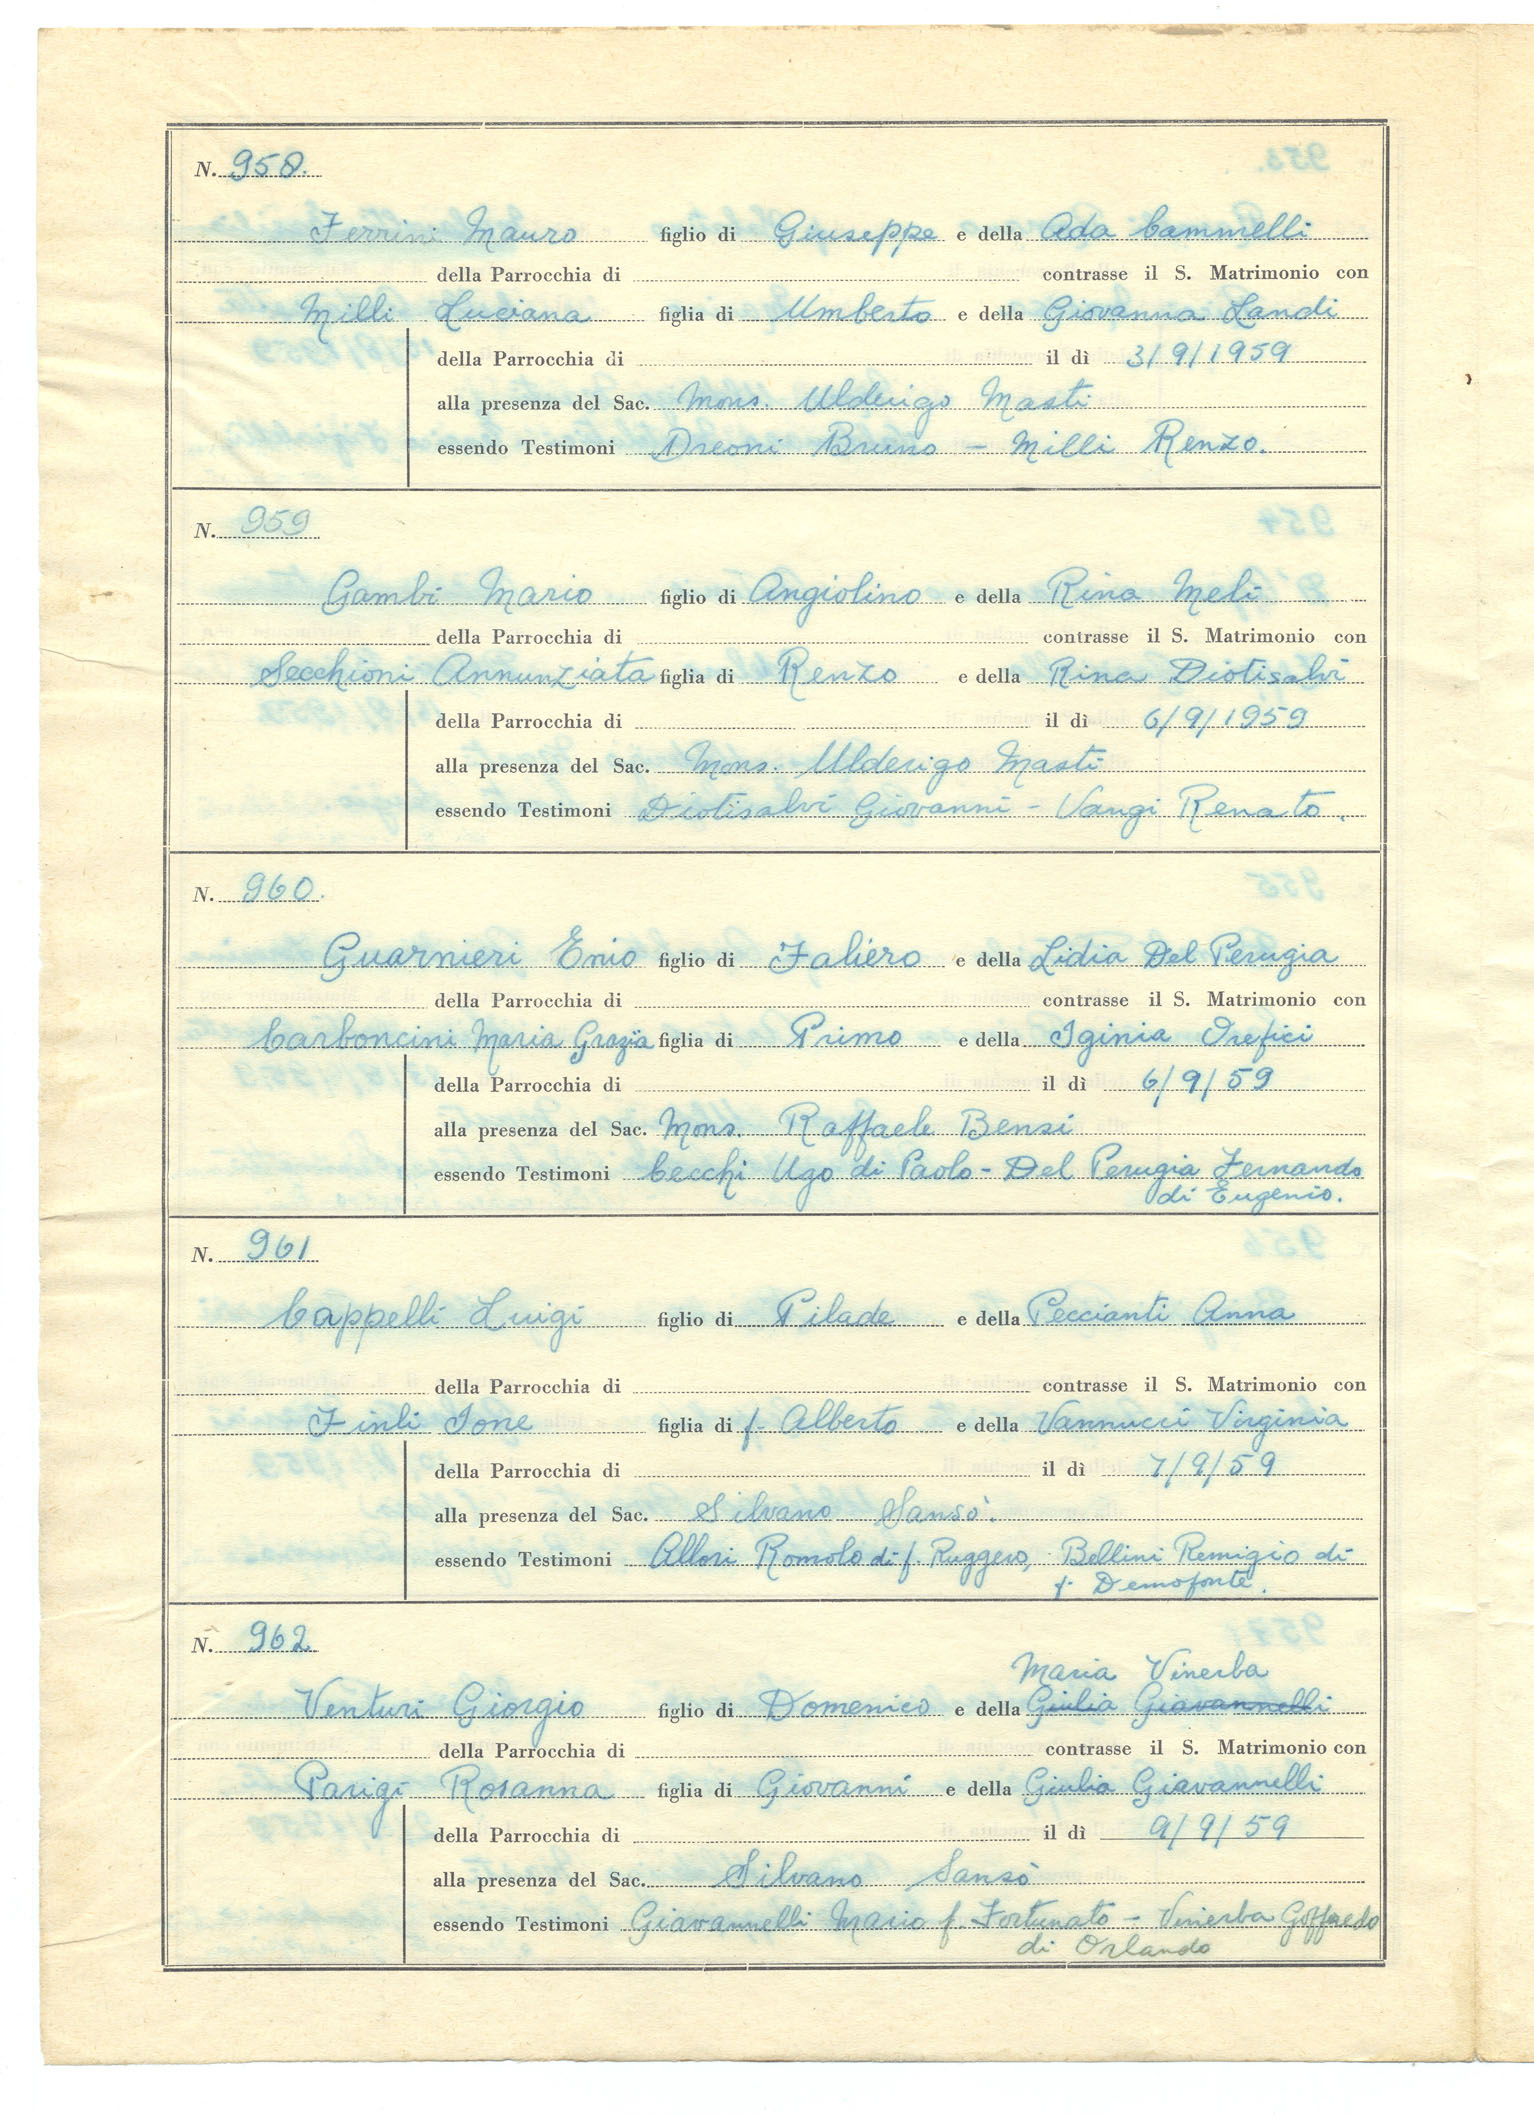 N. 958.
Ferrini Mauro figlio di Giuseppe e della Ada Cammelli
della Parrocchia di contrasse il S. Matrimonio con
Milli Luciana figlia di Umberto e della Giovanna Landi
della Parrocchia di il dì 3/9/1959
alla presenza del Sac. Mons. Ulderigo Masti
essendo Testimoni Dreoni Bruno - Milli Renzo.
N. 959
Gambi Mario figlio di Angiolino e della Rina Meli
della Parrocchia di contrasse il S. Matrimonio con
Secchioni Annunziata figlia di Renzo e della Rina Diotisalvi
della Parrocchia di il dì 6/9/1959
alla presenza del Sac. Mons. Ulderigo Masti
essendo Testimoni Diotisalvi Giovanni - Vangi Renato.
N. 960.
Guarnieri Enio figlio di Faliero e della Lidia Del Perugia
della Parrocchia di contrasse il S. Matrimonio con
Carboncini Maria Grazia figlia di Primo e della Iginia Orefici
della Parrocchia di il dì 6/9/59
alla presenza del Sac. Mons. Raffaele Bensi
essendo Testimoni Cecchi Ugo di Paolo - Del Perugia Fernando
di Eugenio.
N. 961
Cappelli Luigi figlio di Pilade e della Peccianti Anna
della Parrocchia di contrasse il S. Matrimonio con
Finli Ione figlia di f. Alberto e della Vannucci Virginia
della Parrocchia di il dì 7/9/59
alla presenza del Sac. Silvano Sansò.
essendo Testimoni Allori Romolo di f. Ruggero, Bellini Remigio di
f. Demofonte.
N. 962
Maria Vinerba
Venturi Giorgio figlio di Domenico e della Giulia Giavannelli
della Parrocchia di contrasse il S. Matrimonio con
Parigi Rosanna figlia di Giovanni e della Giulia Giavannelli
della Parrocchia di il dì 9/9/59
alla presenza del Sac. Silvano Sansò
essendo Testimoni Giavannelli Mario f. Fortunato - Vinerba Goffredo
di Orlando